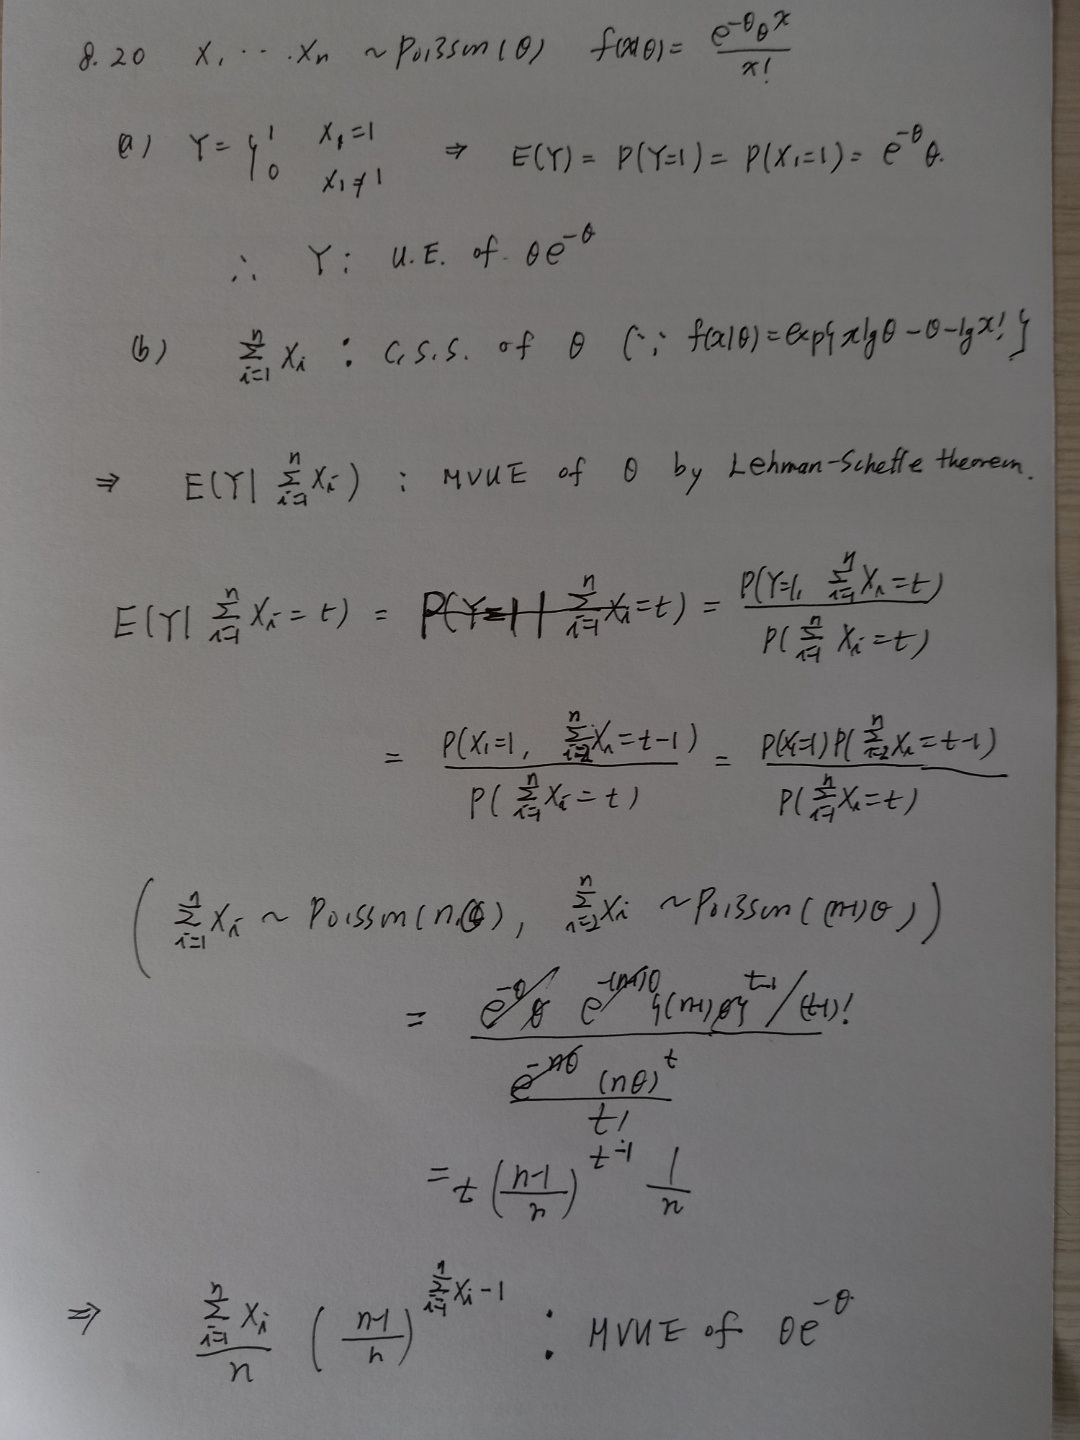 8.20 X₁ ··· Xn ~ Poisson(θ) f(x|θ) = e^{-θ}θ^x / x!
(a) Y = { 1 X₁=1
0 X₁≠1 ⇒ E(Y) = P(Y=1) = P(X₁=1) = e^{-θ}θ.
∴ Y : U.E. of θe^{-θ}
(b) Σ_{i=1}^{n} Xi : C.S.S. of θ (∵ f(x|θ) = exp{xlgθ - θ - lgx!}
⇒ E(Y| Σ_{i=1}^{n} Xi) : MVUE of θ by Lehman-Scheffe theorem.
E(Y| Σ_{i=1}^{n} Xi = t) = P(Y=1| Σ_{i=1}^{n} Xi = t) = P(Y=1, Σ_{i=1}^{n} Xi = t) / P(Σ_{i=1}^{n} Xi = t)
= P(X₁=1, Σ_{i=2}^{n} Xi = t-1) / P(Σ_{i=1}^{n} Xi = t) = P(X₁=1) P(Σ_{i=2}^{n} Xi = t-1) / P(Σ_{i=1}^{n} Xi = t)
( Σ_{i=1}^{n} Xi ~ Poisson(nθ), Σ_{i=2}^{n} Xi ~ Poisson((n-1)θ) )
= e^{-θ}θ e^{-(n-1)θ} {(n-1)θ}^{t-1} / (t-1)! / e^{-nθ} (nθ)^t / t!
= t ( n-1 / n )^{t-1} 1/n
⇒ Σ_{i=1}^{n} Xi / n ( n-1 / n )^{Σ_{i=1}^{n} Xi - 1} : MVUE of θe^{-θ}